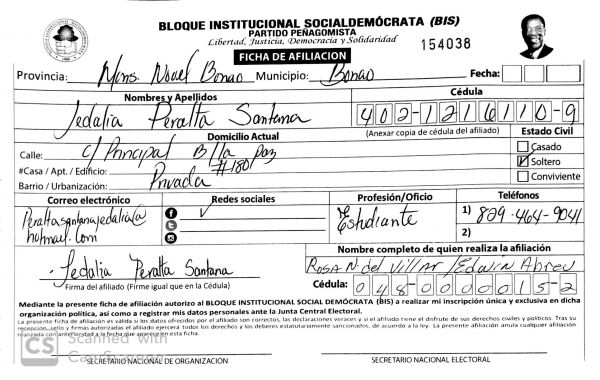 BLOQUE INSTITUCIONAL SOCIALDEMÓCRATA (BIS)
PARTIDO PEÑAGOMISTA
Libertad, Justicia, Democracia y Solidaridad
154038
FICHA DE AFILIACION
Provincia: Mons. Nouel Bonao Municipio: Bonao Fecha:
Nombres y Apellidos Cédula
Jedalia Peralta Santana 402-1216110-9
(Anexar copia de cédula del afiliado)
Domicilio Actual Estado Civil
Calle: c/ Principal B/la paz Casado
#Casa / Apt. / Edificio: #180 Soltero
Barrio / Urbanización: Privada Conviviente
Correo electrónico Redes sociales Profesión/Oficio Teléfonos
Peraltasantanajedalia@ Estudiante 1) 829-464-9041
hotmail.com 2)
Nombre completo de quien realiza la afiliación
Jedalia Peralta Santana Rosa N. del Villar /Edwin Abreu
Firma del afiliado (Firme igual que en la Cédula) Cédula: 048-0000015-2
Mediante la presente ficha de afiliación autorizo al BLOQUE INSTITUCIONAL SOCIAL DEMÓCRATA (BIS) a realizar mi inscripción única y exclusiva en dicha
organización política, así como a registrar mis datos personales ante la Junta Central Electoral.
La presente ficha de afiliación es valida si los datos ofrecidos por el afiliado son correctos, las declaraciones veraces y si el afiliado tiene el disfrute de sus derechos civiles y políticos. Tras su
recepción, sello y firmas autorizadas el afiliado ejercerá todos los derechos y los deberes estatutariamente sancionados, de acuerdo a la ley. La presente afiliación anula cualquier afiliación
realizada con anterioridad a la fecha que aparece en esta ficha.
CS Scanned with
CamScanner
SECRETARIO NACIONAL DE ORGANIZACIÓN SECRETARIO NACIONAL ELECTORAL